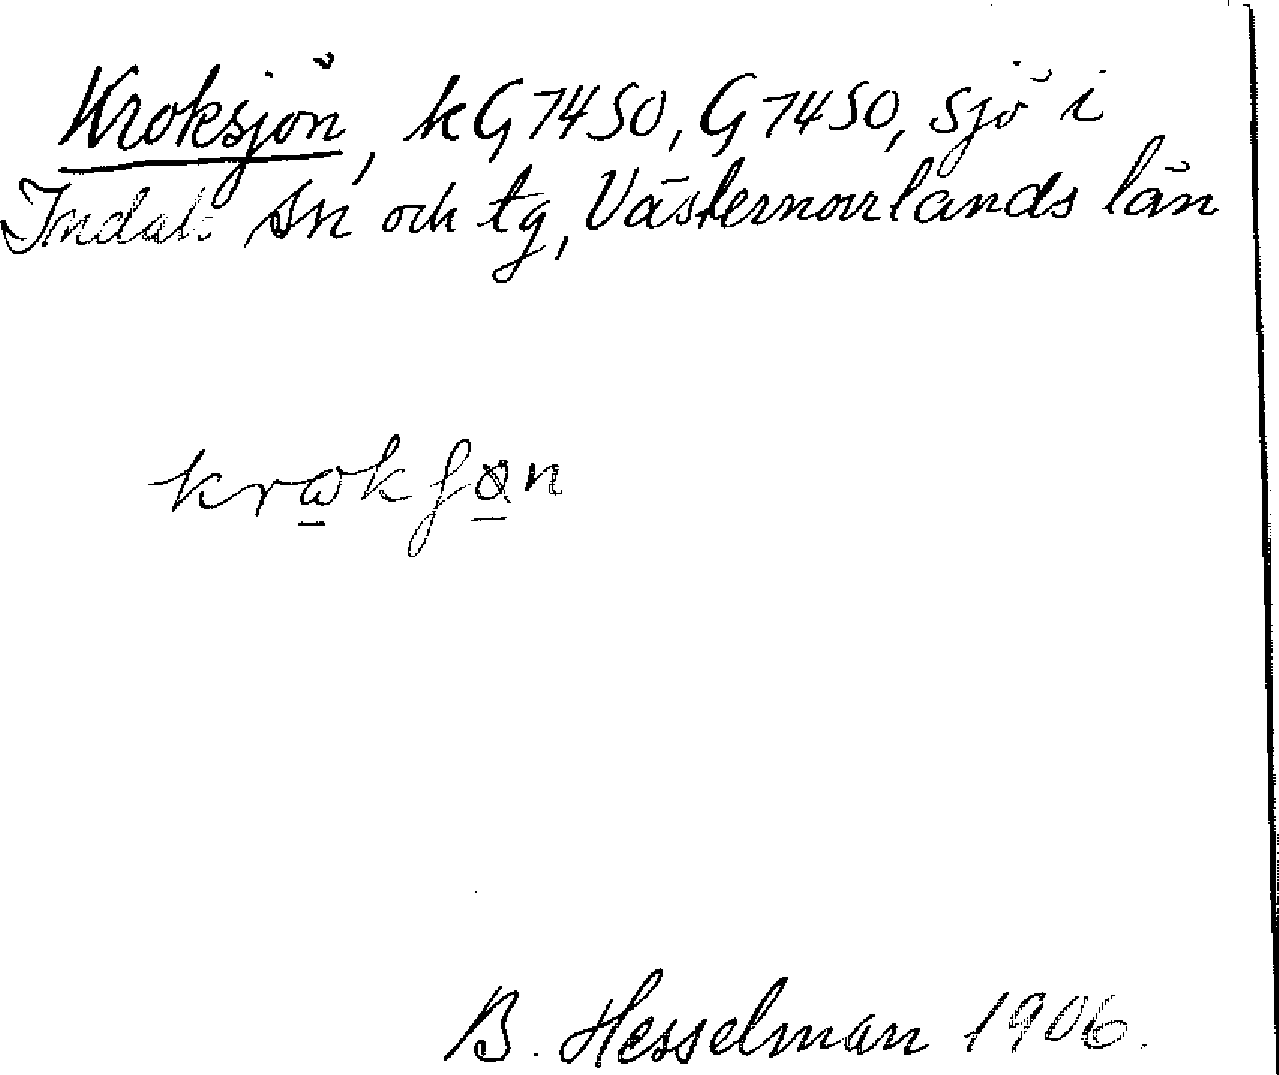 Kroksjön, kG7450, G7450, sjö i
Indals sn och tg, Västernorrlands län
krωkʃøn
B. Hesselman 1906.